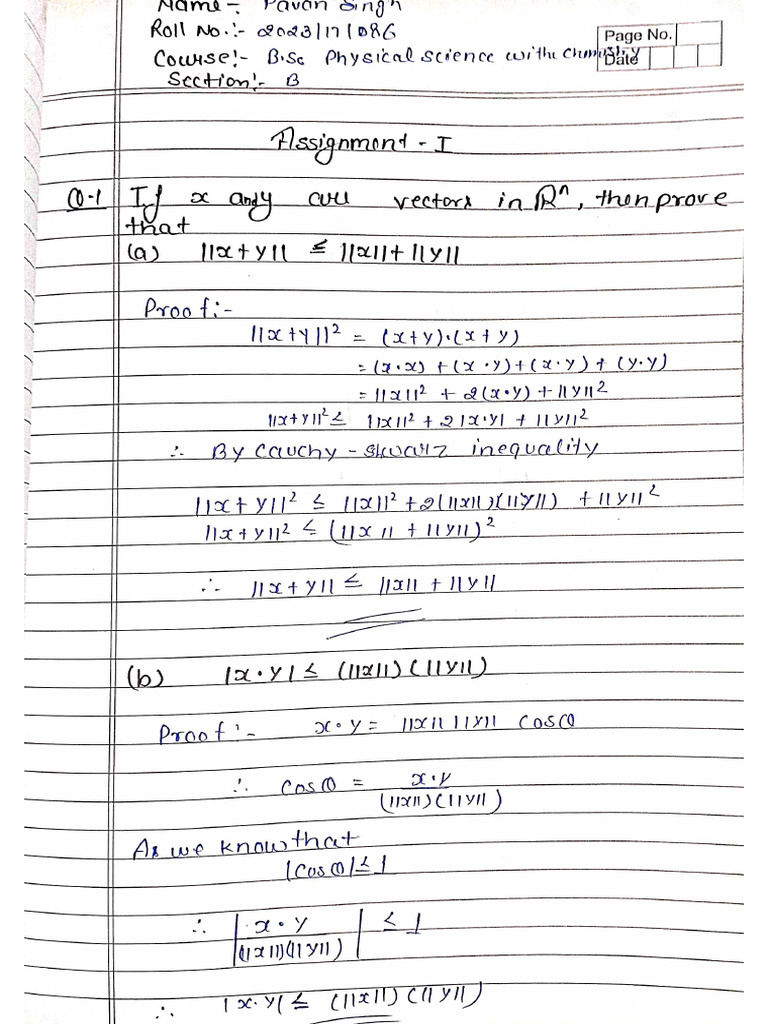 Name:- Pavan Singh
Roll No.:- 2023/17/086
Course:- B.Sc Physical science with chemistry
Page No.
Date
Section:- B
Assignment - I
Q.1 If x and y are vectors in ℝⁿ, then prove
that
(a) ||x+y|| ≤ ||x|| + ||y||
Proof:-
||x+y||² = (x+y)·(x+y)
= (x·x) + (x·y) + (x·y) + (y·y)
= ||x||² + 2(x·y) + ||y||²
||x+y||² ≤ ||x||² + 2|x·y| + ||y||²
∴ By Cauchy-Shwarz inequality
||x+y||² ≤ ||x||² + 2(||x||)(||y||) + ||y||²
||x+y||² ≤ (||x|| + ||y||)²
∴ ||x+y|| ≤ ||x|| + ||y||
(b) |x·y| ≤ (||x||)(||y||)
Proof:- x·y = ||x|| ||y|| cosθ
∴ cosθ = x·y
(||x||)(||y||)
As we know that
|cosθ| ≤ 1
∴ | x·y | ≤ 1
(||x||)(||y||)
∴ |x·y| ≤ (||x||)(||y||)